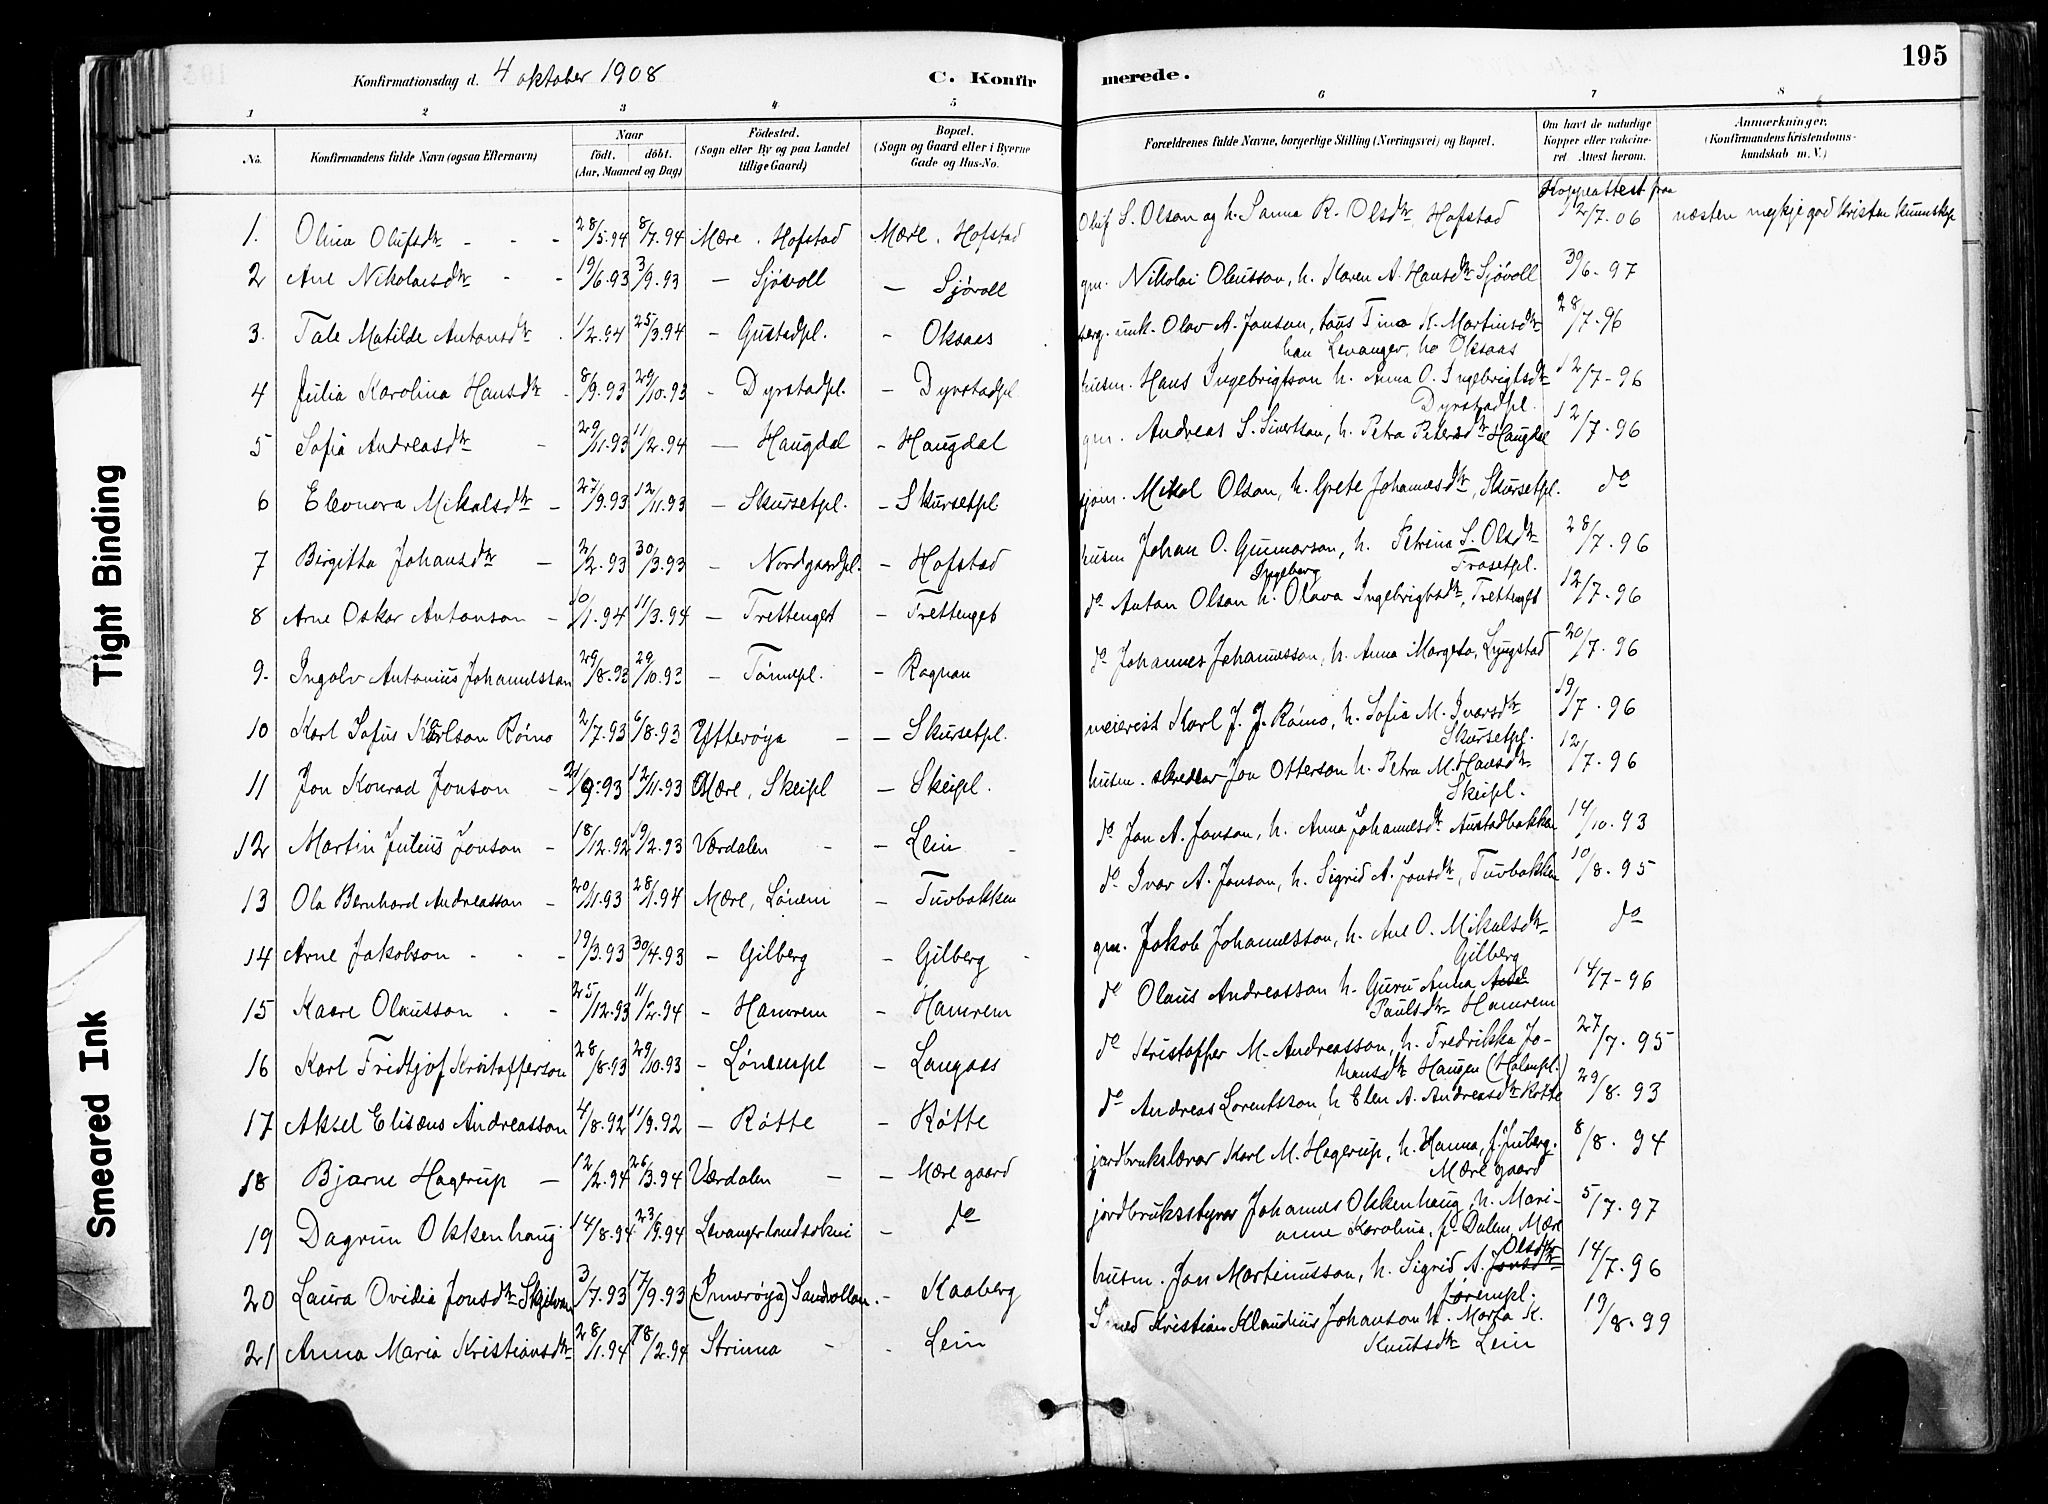 195
Konfirmationsdag d. 4 oktober 1908
C. Konfirmerede.
1 2 3 4 5 6 7 8
No. Konfirmandens fulde Navn (ogsaa Efternavn) Naar født. døbt. (Aar, Maaned og Dag) Fødested. (Sogn eller By og paa Landet tillige Gaard) Bopæl. (Sogn og Gaard eller i Byerne Gade og Hus-No. Forældrenes fulde Navne, borgerlige Stilling (Næringsvei) og Bopæl. Om havt de naturlige Kopper eller vaccineret. Attest herom. Anmærkninger, (Konfirmandens Kristendomskundskab m. V.)
Koppeattest fraa
1. Olina Olufsdtr - - - 28/5.94 8/7.94 Mære, Hofstad Mære, Hofstad Oluf S. Olson og h. Sanna R. Olsdtr Hofstad 12/7.06 næsten meykje god kristen kunnskap
2 Ane Nikolaisdtr - - 19/6.93 3/9.93 — Sjøvoll — Sjøvoll gm. Nikolai Olausson, h. Karen A. Hansdtr Sjøvoll 30/6-97
3. Tale Matilde Antonsdtr 1/2.94 25/3.94 - Gustadpl. - Oksaas unk. Olav A. Jonson, taus Tina K. Martinsdtr 28/7.96
han Levanger, ho Oksaas
4 Julia Karolina Hansdtr - 8/9.93 29/10.93 - Dyrstadpl. - Dyrstadpl husm. Hans Ingebrigtson h. Anna O. Ingebrigtsdtr 12/7-96
Dyrstadpl.
5 Sofia Andreasdtr - 29/11.93 11/2.94 — Haugdal - Haugdal gm. Andreas S. Sivertson, h. Petra Petersdtr Haugdal 12/7.96
6 Eleonora Mikalsdtr - 27/9.93 12/11.93 — Skursetpl. - Skursetpl sjøm. Mikal Olson, h. Grete Johannesdtr, Skursetpl. do
7 Birgitta Johansdtr — 2/2.93 30/3.93 — Nordgaardpl. - Hofstad husm Johan O. Gunnarson, h. Petrina S. Olsdtr 28/7.96
Ingeberg Trøsetpl.
8 Arne Oskar Antonson - 10/1.94 11/3.94 — Trettenget - Trettenget do Anton Olson h. Olava Ingebrigtsdtr, Trettenget 12/7.96
9. Ingolv Antonius Johannesson 29/8.93 29/10.93 — Tønnepl. - Ragnan do Johannes Johannesson, h. Anna Margreta, Lyngstad 20/7.96
10 Karl Sofus Karlson Rømo 2/7.93 6/8.93 Ytterøya — — Skursetpl. meierist Karl J. J. Rømo, h. Sofia M. Ivarsdtr 19/7.96
Skursetpl.
11 Jon Konrad Jonson - 21/9.93 12/11.93 Mære, Skeipl — Skeipl. husm. skreddar Jon Otterson h. Petra M. Hansdtr 12/7.96
Skeipl.
12 Martin Julius Jonson - 18/12.92 19/2.93 Værdalen - - Lein - do Jon A. Jonson, h. Anna Johannesdtr Austadbakken 14/10.93
13 Ola Bernhard Andreasson - 20/11.93 28/1.94 Mære, Lønem - Tuvbakken do Ivar A. Jonson, h. Sigrid A. Jonsdtr, Tuvbakken 10/8.95
14 Arne Jakobson - - - 19/3.93 30/4.93 - Gilberg - Gilberg - gm. Jakob Johannesson, h. Ane O. Mikalsdtr do
Gilberg
15 Kaare Olausson . - 25/12.93 11/2.94 - Hamrem - Hamrem do Olaus Andreasson h. Guru Anna 14/7-96
Paulsdtr Hamrem
16 Karl Fridtjof Kristofferson 28/8.93 29/10.93 - Lønempl - Langaas do Kristoffer M. Andreasson, h. Fredrikka Jo- 27/7.95
hansdtr Haugen (Holanpl.)
17 Aksel Elisæus Andreasson 4/8.92 11/9.92 — Røtte - Røtte do Andreas Lorentsson, h Elen A. Andreasdtr Røtte 29/8.93
18 Bjarne Hagerup — 12/2.94 26/3.94 Værdalen — — Mære gaard jordbrukslærar Karl M. Hagerup, h. Hanna, f. Juberg. 8/8.94
Mære gaard
19 Dagrun Okkenhaug 14/8.94 23/9.94 Levanger landsokni - do jordbruksstyrar Johannes Okkenhaug, h. Mari- 5/7.97
anne Karolina, f. Dalem, Mære
20 Laura Ovidia Jonsdtr Skjelvan 3/7.93 17/9.93 (Inderøya) Sandvollan. - Kaaberg husm. Jon Martinusson, h. Sigrid A. Jonsdtr Olsdtr 14/7.96
Jørempl.
21 Anna Maria Kristiansdtr 28/1.94 18/2.94 Strinna - - Lein Smed Kristian Klaudius Johanson h. Marta K. 13/8.99
Knutsdtr Lein
Tight Binding
Smeared Ink